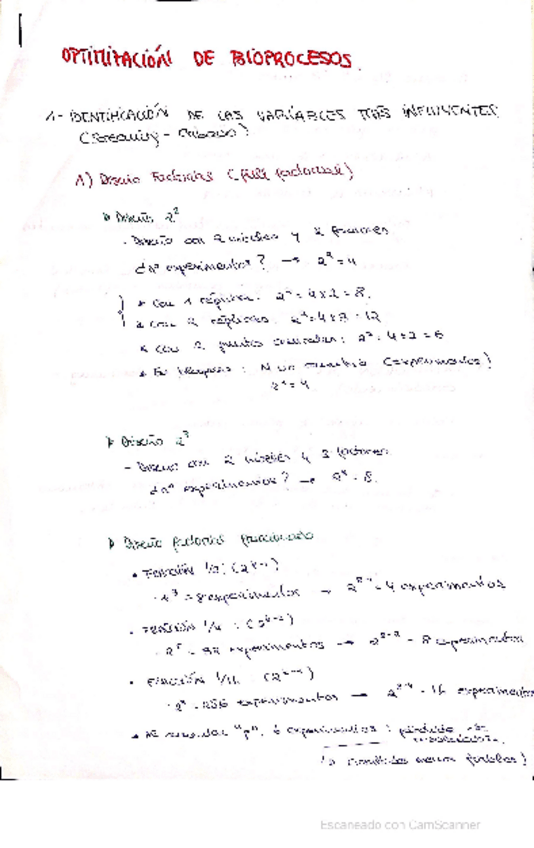 OPTIMIZACIÓN DE BIOPROCESOS
1- IDENTIFICACIÓN DE LAS VARIABLES MÁS INFLUYENTES
(Screening - Cribado)
1) Diseño Factorial (full factorial)
Diseño 2²
- Diseño con 2 niveles y 2 factores
¿nº experimentos? → 2² = 4
* con 1 réplica: 2² = 4x2 = 8
* con 2 réplicas: 2² = 4x3 = 12
* con 2 puntos centrales: 2² = 4+2 = 6
* En bloques: N no cambia (experimentos)
2² = 4
Diseño 2³
- Diseño con 2 niveles y 3 factores
¿nº experimentos? → 2³ = 8
Diseño factorial fraccionado
• Fracción 1/2: (2ᵏ⁻¹)
· 2³ = 8 experimentos → 2³⁻¹ = 4 experimentos
• Fracción 1/4: (2ᵏ⁻²)
· 2⁵ = 32 experimentos → 2⁵⁻² = 8 experimentos
• Fracción 1/16 : (2ᵏ⁻⁴)
· 2⁸ = 256 experimentos → 2⁸⁻⁴ = 16 experimentos
• Al aumentar "p", ↓ experimentos : pérdida de
Escaneado con CamScanner